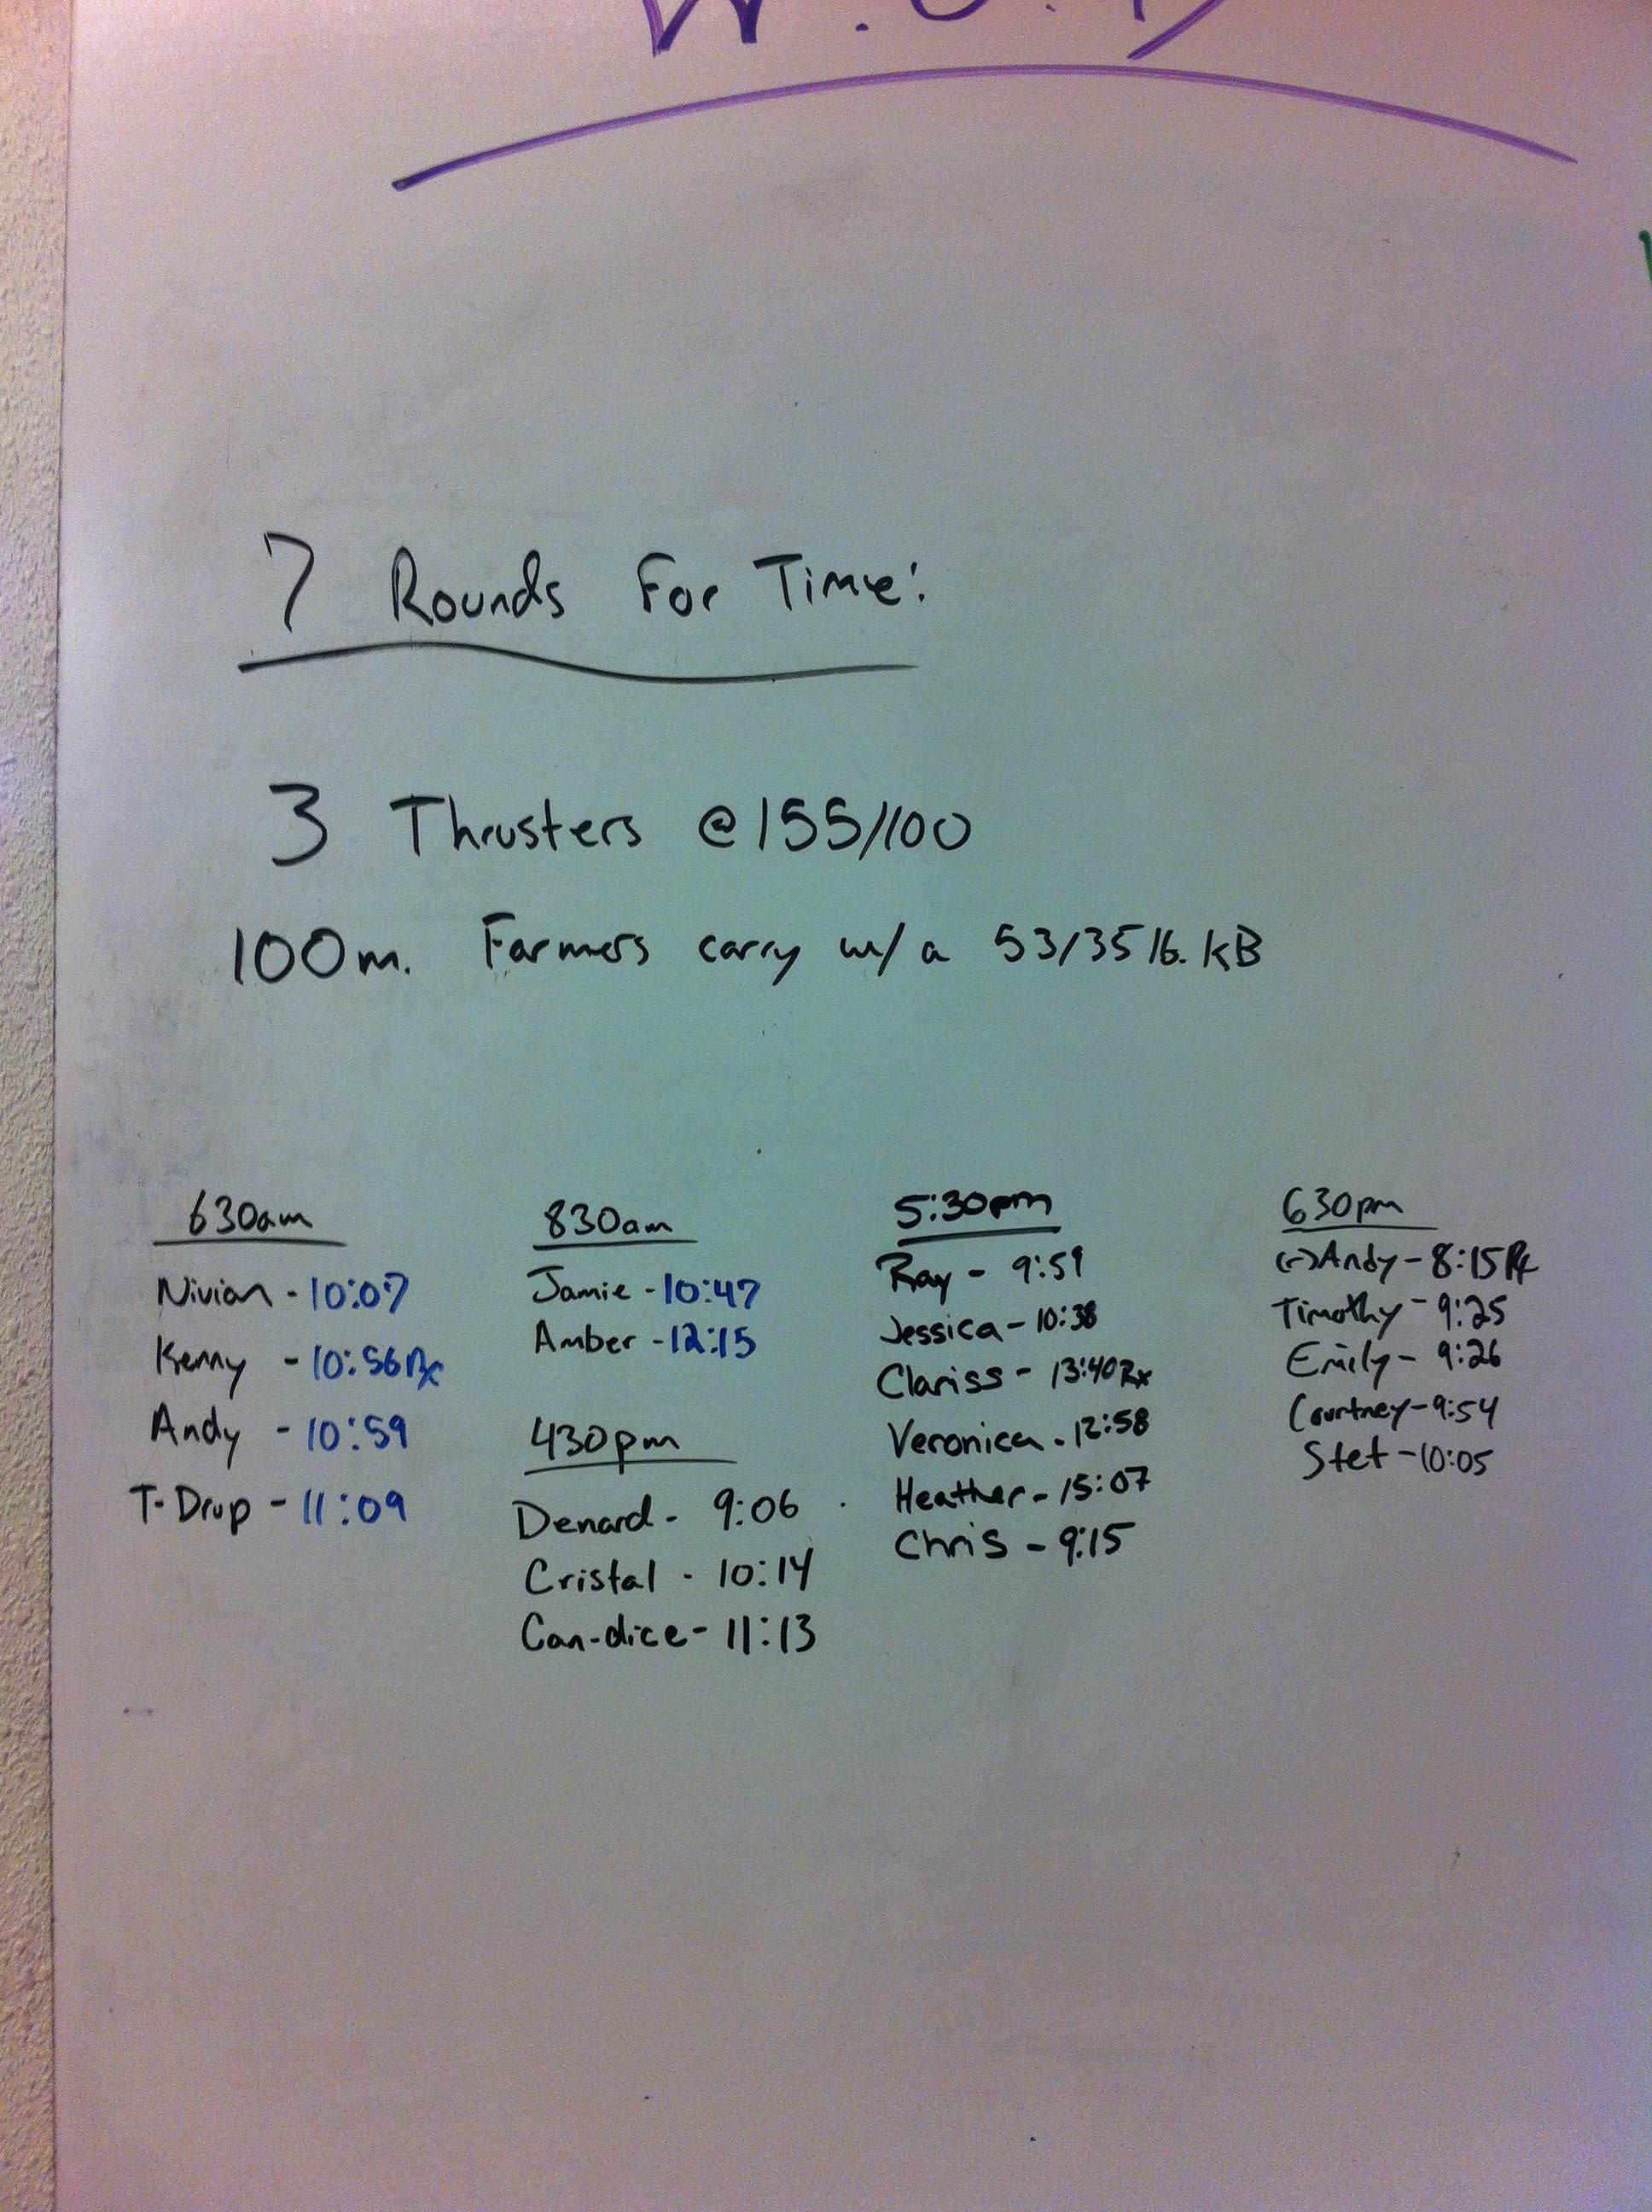 W.O.D
7 Rounds For Time:
3 Thrusters @ 155/100
100m. Farmers carry w/ a 53/35 lb. KB
630am
Nivian - 10:07
Kenny - 10:56 Rx
Andy - 10:59
T-Drup - 11:09
830am
Jamie - 10:47
Amber - 12:15
430pm
Denard - 9:06
Cristal - 10:14
Can-dice - 11:13
5:30pm
Ray - 9:59
Jessica - 10:38
Clariss - 13:40 Rx
Veronica - 12:58
Heather - 15:07
Chris - 9:15
630pm
(-) Andy - 8:15 Rx
Timothy - 9:25
Emily - 9:26
Courtney - 9:54
Stet - 10:05